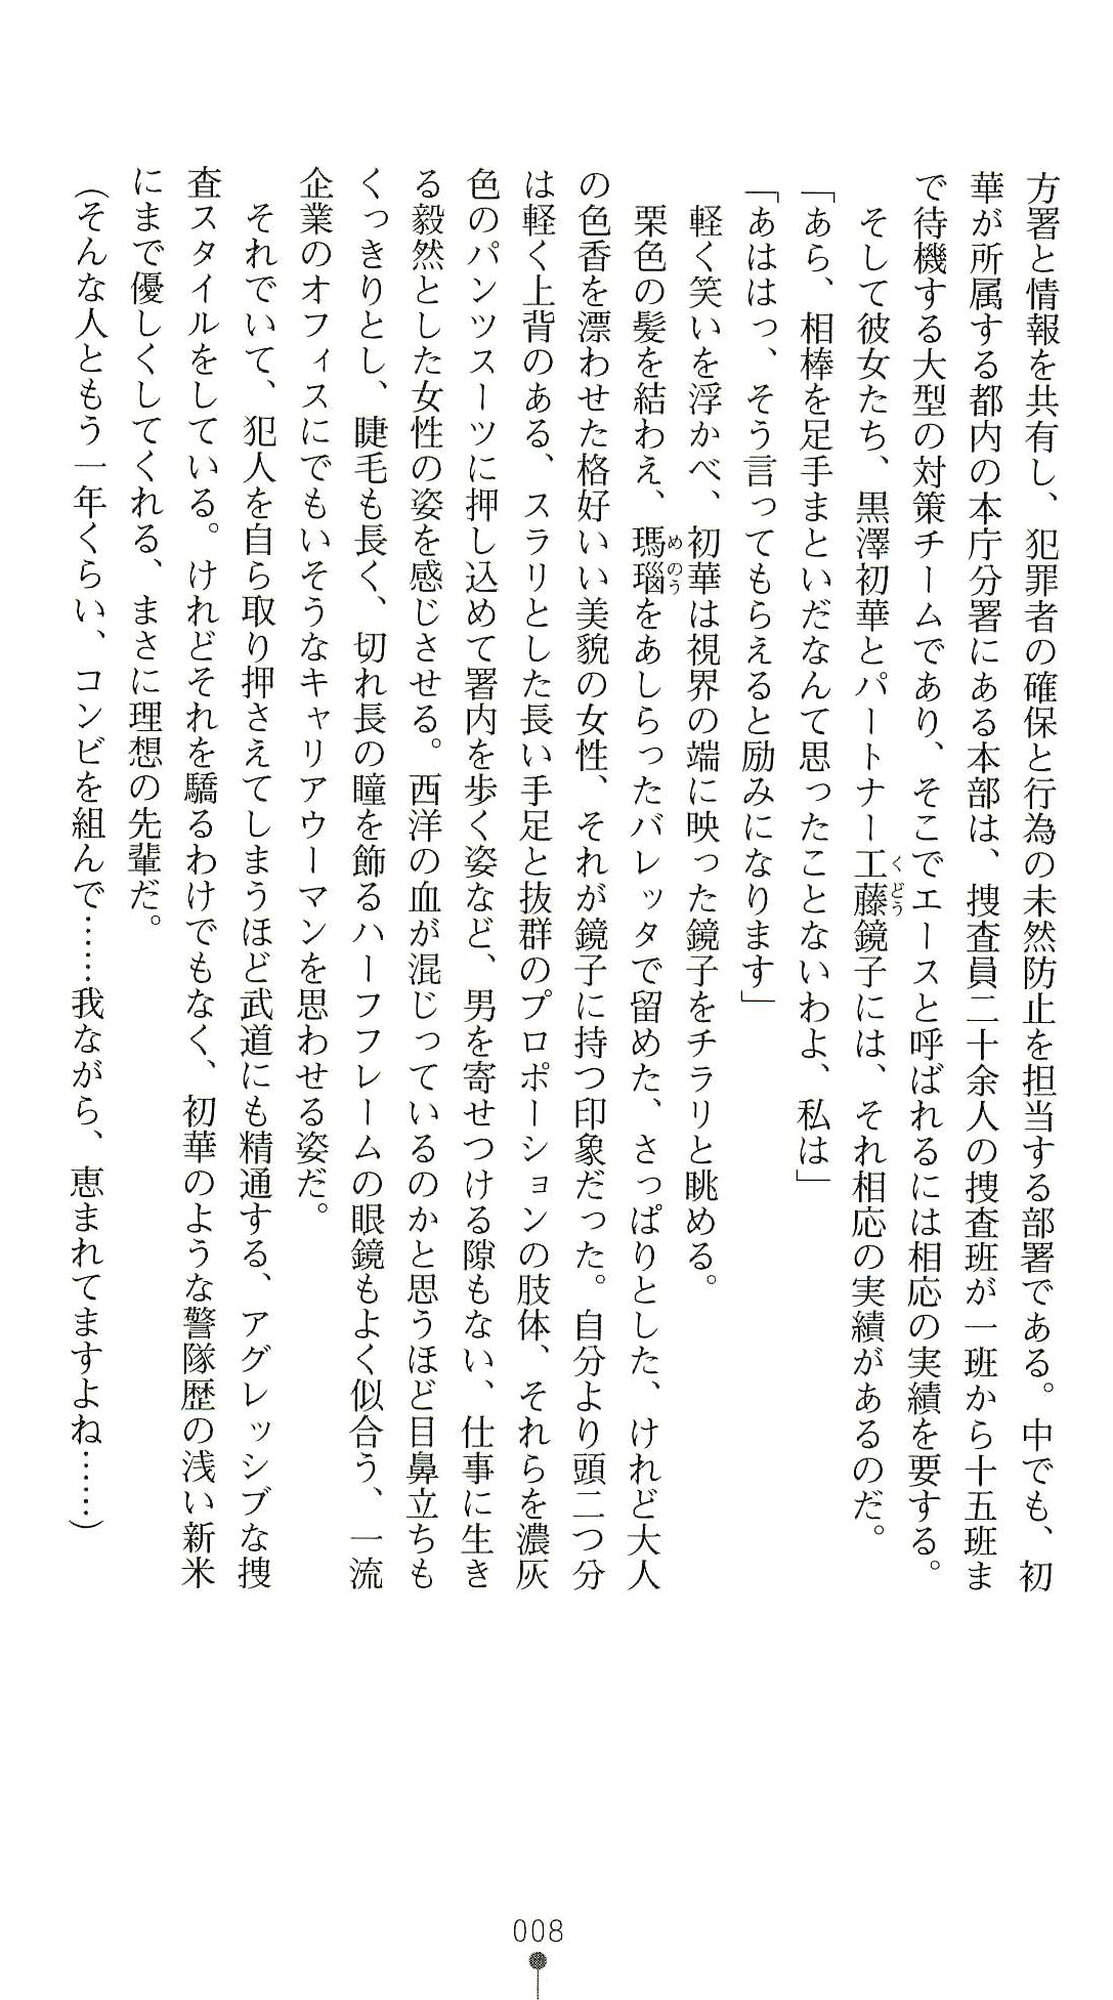 方署と情報を共有し、犯罪者の確保と行為の未然防止を担当する部署である。中でも、初
華が所属する都内の本庁分署にある本部は、捜査員二十余人の捜査班が一班から十五班ま
で待機する大型の対策チームであり、そこでエースと呼ばれるには相応の実績を要する。
そして彼女たち、黒澤初華とパートナー工藤鏡子には、それ相応の実績があるのだ。
くどう
「あら、相棒を足手まといだなんて思ったことないわよ、私は」
「あははっ、そう言ってもらえると励みになります」
軽く笑いを浮かべ、初華は視界の端に映った鏡子をチラリと眺める。
栗色の髪を結わえ、瑪瑙をあしらったバレッタで留めた、さっぱりとした、けれど大人
めのう
の色香を漂わせた格好いい美貌の女性、それが鏡子に持つ印象だった。自分より頭二つ分
は軽く上背のある、スラリとした長い手足と抜群のプロポーションの肢体、それらを濃灰
色のパンツスーツに押し込めて署内を歩く姿など、男を寄せつける隙もない、仕事に生き
る毅然とした女性の姿を感じさせる。西洋の血が混じっているのかと思うほど目鼻立ちも
くっきりとし、睫毛も長く、切れ長の瞳を飾るハーフフレームの眼鏡もよく似合う、一流
企業のオフィスにでもいそうなキャリアウーマンを思わせる姿だ。
それでいて、犯人を自ら取り押さえてしまうほど武道にも精通する、アグレッシブな捜
査スタイルをしている。けれどそれを驕るわけでもなく、初華のような警隊歴の浅い新米
にまで優しくしてくれる、まさに理想の先輩だ。
（そんな人ともう一年くらい、コンビを組んで……我ながら、恵まれてますよね……）
008